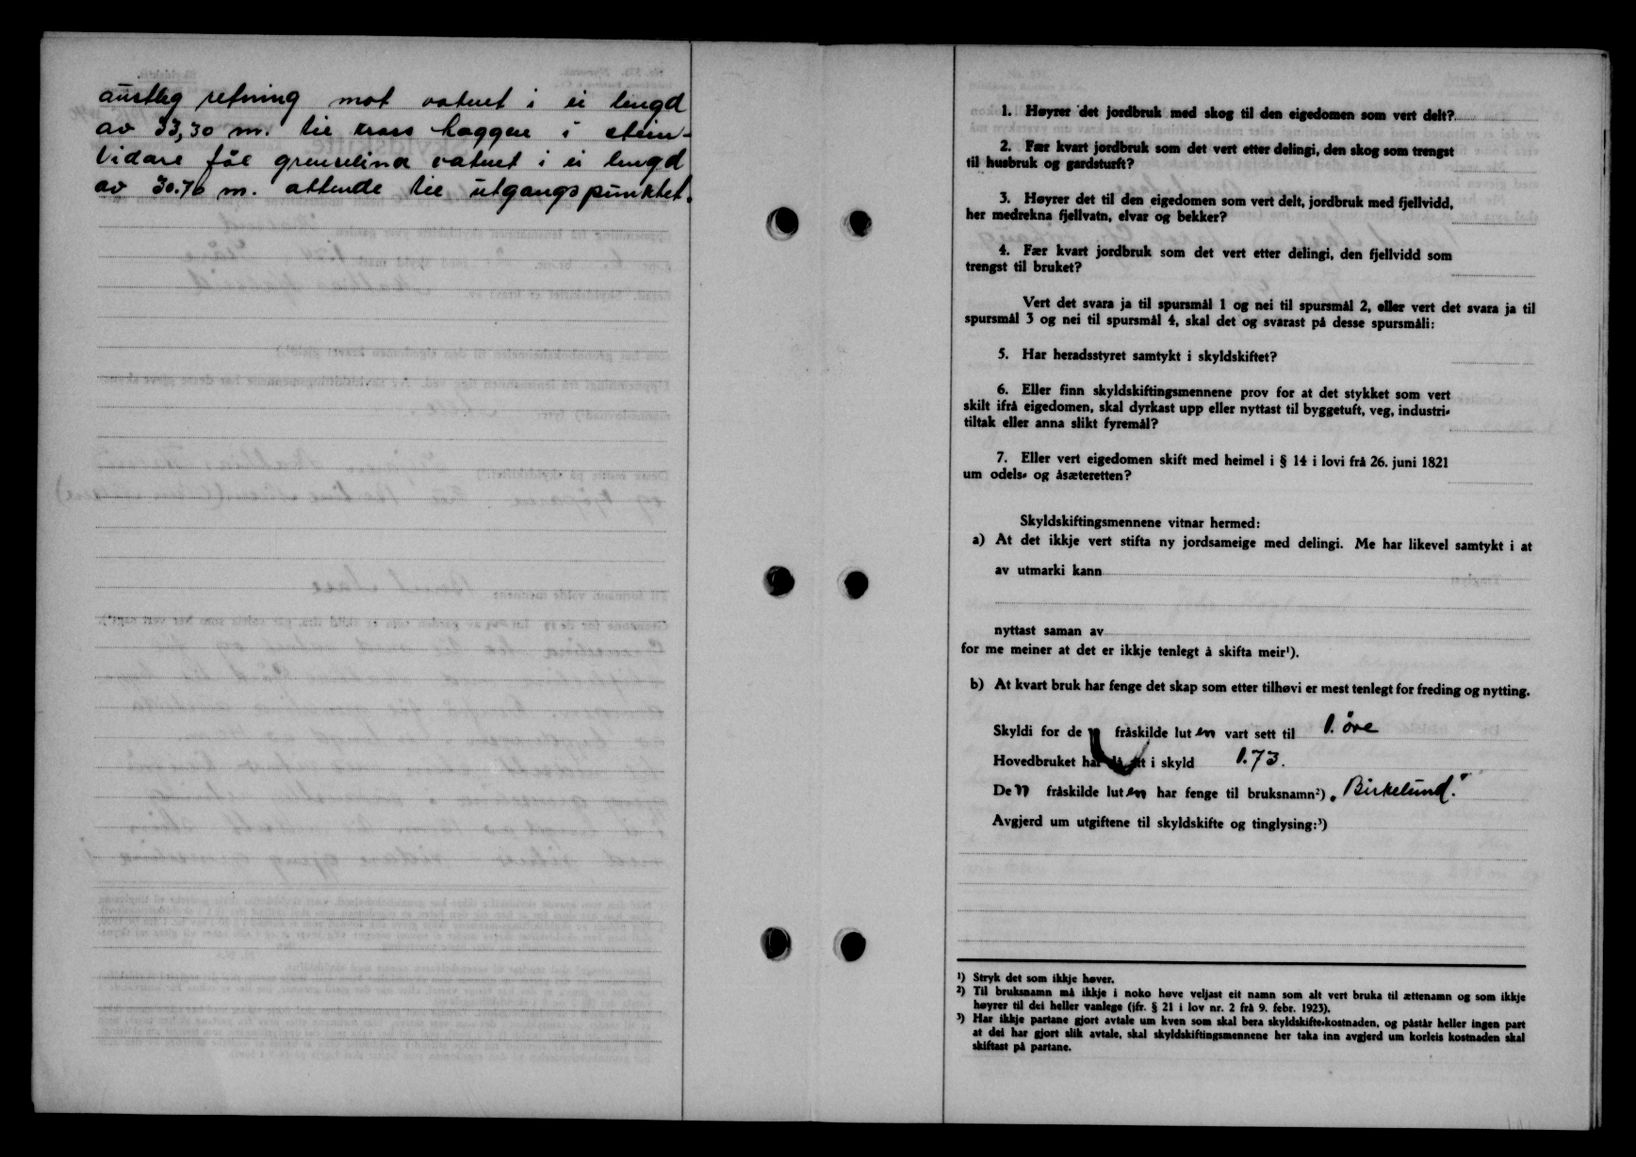 austleg retning mot vatnet i ei lengd
av 33,30 m. til kross hoggen i stein-
Vidare föl grenselina vatnet i ei lengd
av 30.70 m. attende til utgangspunktet.
1. Høyrer det jordbruk med skog til den eigedomen som vert delt?
2. Fær kvart jordbruk som det vert etter delingi, den skog som trengst
til husbruk og gardsturft?
3. Høyrer det til den eigedomen som vert delt, jordbruk med fjellvidd,
her medrekna fjellvatn, elvar og bekker?
4. Fær kvart jordbruk som det vert etter delingi, den fjellvidd som
trengst til bruket?
Vert det svara ja til spursmål 1 og nei til spursmål 2, eller vert det svara ja til
spursmål 3 og nei til spursmål 4, skal det og svarast på desse spursmåli:
5. Har heradsstyret samtykt i skyldskiftet?
6. Eller finn skyldskiftingsmennene prov for at det stykket som vert
skilt ifrå eigedomen, skal dyrkast upp eller nyttast til byggetuft, veg, industri-
tiltak eller anna slikt fyremål?
7. Eller vert eigedomen skift med heimel i § 14 i lovi frå 26. juni 1821
um odels- og åsæteretten?
Skyldskiftingsmennene vitnar hermed:
a) At det ikkje vert stifta ny jordsameige med delingi. Me har likevel samtykt i at
av utmarki kann
nyttast saman av
for me meiner at det er ikkje tenlegt å skifta meir¹).
b) At kvart bruk har fenge det skap som etter tilhøvi er mest tenlegt for freding og nytting.
Skyldi for de n fråskilde lut en vart sett til 1. öre
Hovedbruket har att i skyld 1.73.
De n fråskilde lut en har fenge til bruksnamn²) „Birkelund."
Avgjerd um utgiftene til skyldskifte og tinglysing:³)
¹) Stryk det som ikkje høver.
²) Til bruksnamn må ikkje i noko høve veljast eit namn som alt vert bruka til ættenamn og som ikkje
høyrer til dei heller vanlege (jfr. § 21 i lov nr. 2 frå 9. febr. 1923).
³) Har ikkje partane gjort avtale um kven som skal bera skyldskifte-kostnaden, og påstår heller ingen part
at dei har gjort slik avtale, skal skyldskiftingsmennene her taka inn avgjerd um korleis kostnaden skal
skiftast på partane.